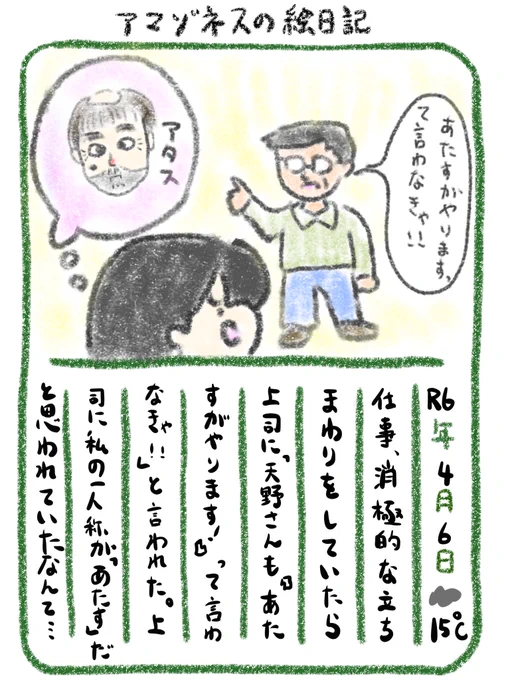 アマゾネスの絵日記
あたすがやります、
て言わなきゃ!!
アタス
R6年4月6日 15℃
仕事、消極的な立ち
まわりをしていたら
上司に「天野さんも『あた
すがやります!』って言わ
なきゃ!!」と言われた。上
司に私の一人称が「あたす」だ
と思われていたなんて…